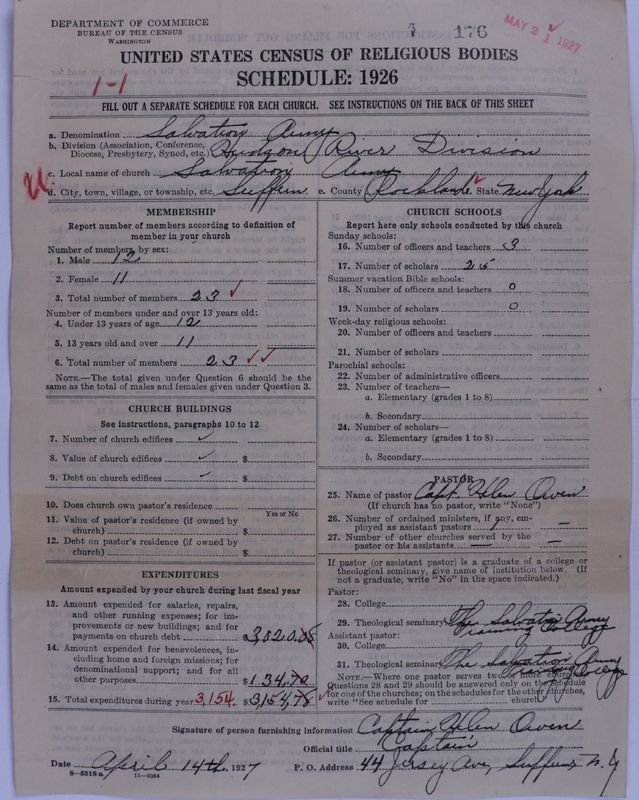 DEPARTMENT OF COMMERCE
BUREAU OF THE CENSUS
WASHINGTON
176
MAY 21 1927
UNITED STATES CENSUS OF RELIGIOUS BODIES
SCHEDULE: 1926
1-1
FILL OUT A SEPARATE SCHEDULE FOR EACH CHURCH. SEE INSTRUCTIONS ON THE BACK OF THIS SHEET
a. Denomination Salvation Army
b. Division (Association, Conference, Diocese, Presbytery, Synod, etc.) Hudson River Division
c. Local name of church Salvation Army
d. City, town, village, or township, etc. Suffern e. County Rockland State New York
MEMBERSHIP
Report number of members according to definition of
member in your church
Number of members by sex:
1. Male 12
2. Female 11
3. Total number of members 23
Number of members under and over 13 years old:
4. Under 13 years of age 12
5. 13 years old and over 11
6. Total number of members 23
NOTE.—The total given under Question 6 should be the
same as the total of males and females given under Question 3.
CHURCH BUILDINGS
See instructions, paragraphs 10 to 12
7. Number of church edifices
8. Value of church edifices $
9. Debt on church edifices $
10. Does church own pastor's residence
Yes or No
11. Value of pastor's residence (if owned by
church) $
12. Debt on pastor's residence (if owned by
church) $
EXPENDITURES
Amount expended by your church during last fiscal year
13. Amount expended for salaries, repairs,
and other running expenses; for im-
provements or new buildings; and for
payments on church debt $3,020.08
14. Amount expended for benevolences, in-
cluding home and foreign missions; for
denominational support; and for all
other purposes $134.70
15. Total expenditures during year 3,154. $3,154.78
CHURCH SCHOOLS
Report here only schools conducted by this church
Sunday schools:
16. Number of officers and teachers 3
17. Number of scholars 25
Summer vacation Bible schools:
18. Number of officers and teachers 0
19. Number of scholars 0
Week-day religious schools:
20. Number of officers and teachers
21. Number of scholars
Parochial schools:
22. Number of administrative officers
23. Number of teachers—
a. Elementary (grades 1 to 8)
b. Secondary
24. Number of scholars—
a. Elementary (grades 1 to 8)
b. Secondary
PASTOR
25. Name of pastor Capt. Helen Owen
(If church has no pastor, write "None")
26. Number of ordained ministers, if any, em-
ployed as assistant pastors 1 —
27. Number of other churches served by the
pastor or his assistants — —
If pastor (or assistant pastor) is a graduate of a college or
theological seminary, give name of institution below. (If
not a graduate, write "No" in the space indicated.)
Pastor:
28. College
29. Theological seminary The Salvation Army Training College
Assistant pastor:
30. College
31. Theological seminary The Salvation Army Training College
NOTE.—Where one pastor serves two or more churches,
Questions 28 and 29 should be answered only on the schedule
for one of the churches; on the schedules for the other churches,
write "See schedule for church."
Signature of person furnishing information Captain Helen Owen
Official title Captain
Date April 14th, 1927 P. O. Address 44 Jersey Ave, Suffern, N. Y.
8—5518a 11—9054